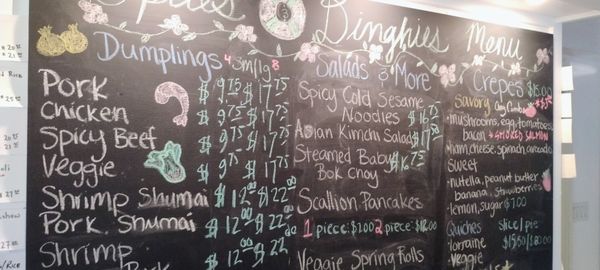 Binghies Menu
Dumplings 4 Sm/lg 8
Pork $9.75 $17.75
Chicken $9.75 $17.75
Spicy Beef $9.75 $17.75
Veggie $9.75 $17.75
Shrimp Shumai $12.00 $22.00
Pork Shumai $12.00 $22.00
Shrimp $12.00 $22.00
Pork
Salads & More
Spicy Cold Sesame
Noodles $16.75
Asian Kimchi Salad $17.50
Steamed Baby
Bok Choy $16.75
Scallion Pancakes
1 piece: $7.00 2 piece: $12.00
Veggie Spring Rolls
Crepes $15.00
Savory
mushrooms, egg, tomatoes,
bacon SMOKED SALMON
ham, cheese, spinach, avocado
Sweet
nutella, peanut butter
banana, strawberries
lemon, sugar $7.00
Quiches slice/pie
lorraine
veggie